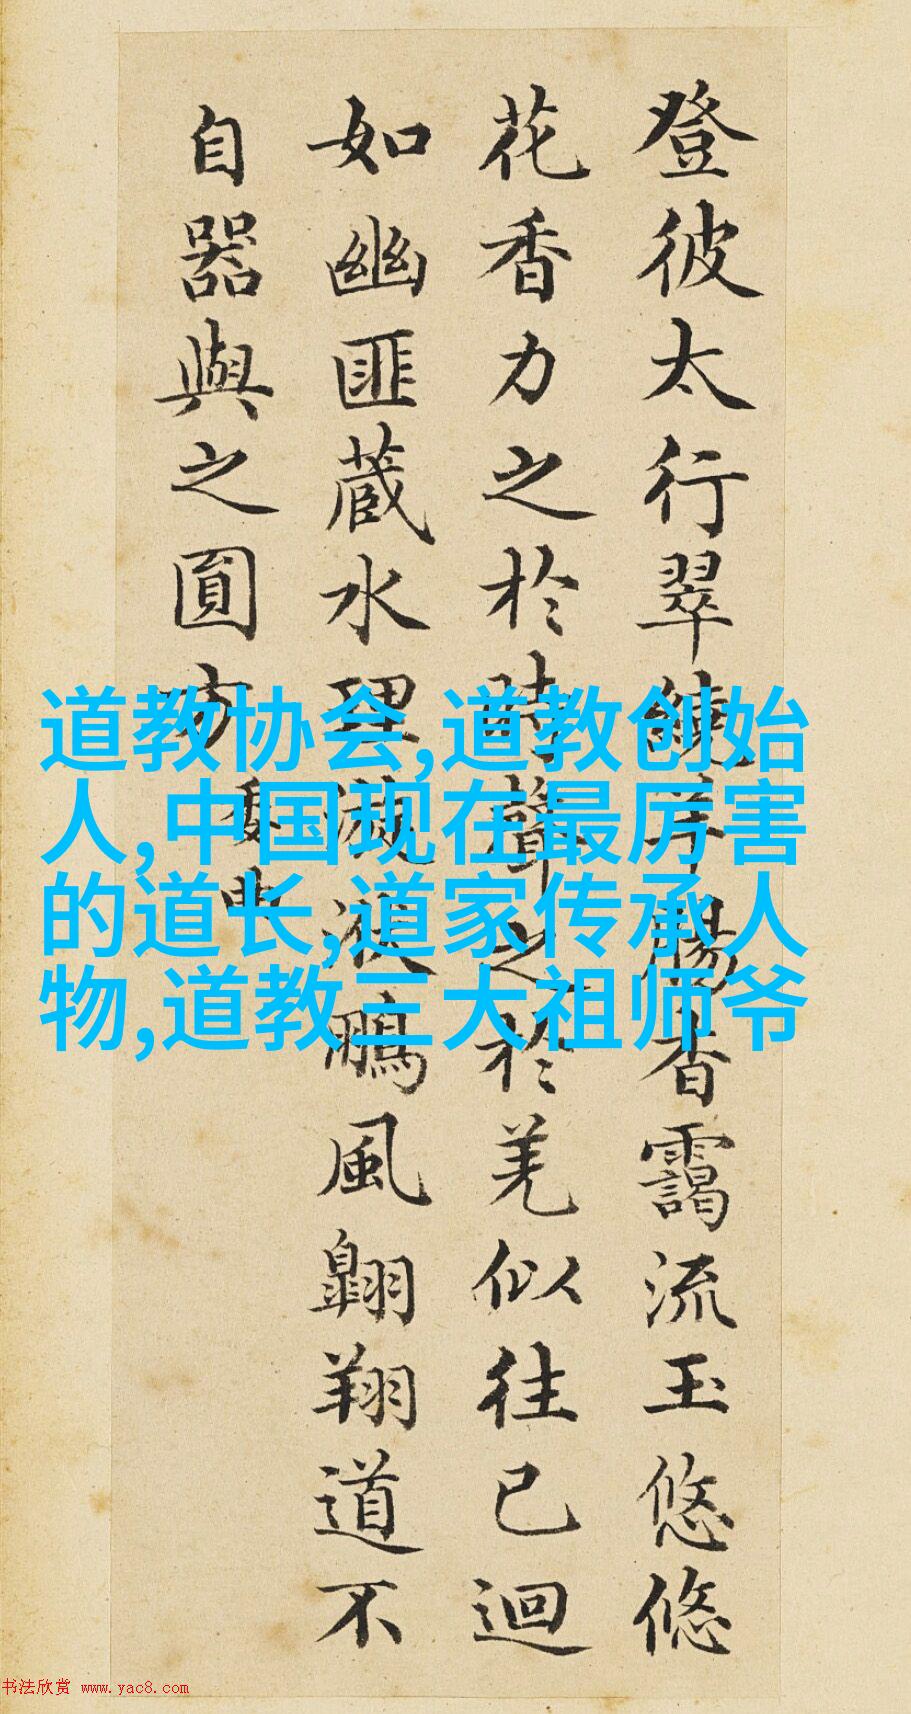 登彼太行翠繞羊腸杳靄流玉悠悠
花香力之於時聲之於羌似往已迴
如幽匪蔵水理漩洑鵬風翶翔道不
自器與之圓方
委曲
道教协会,道教创始
人,中国现在最厉害
的道长,道家传承人
物,道教三大祖师爷
书法欣赏 www.yac8.com